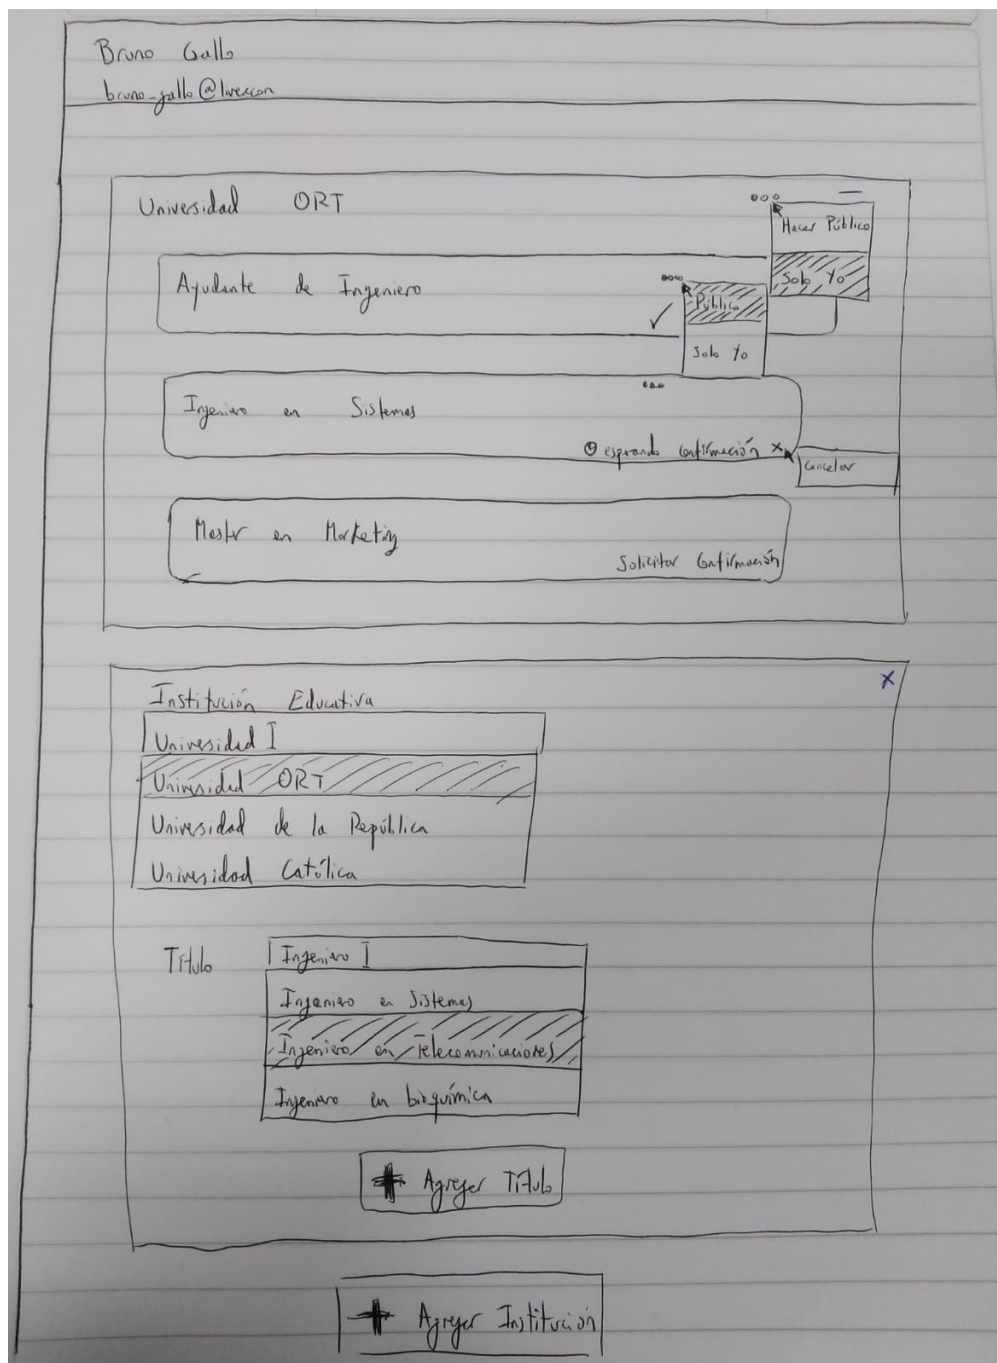 Bruno Gallo
bruno_gallo@live.com
Universidad ORT
Hacer Público
Solo Yo
Ayudante de Ingeniero
Público
Solo Yo
Ingeniero en Sistemas
esperando Confirmación x
Cancelar
Master en Marketing
Solicitar Confirmación
x
Institución Educativa
Universidad I
Universidad ORT
Universidad de la República
Universidad Católica
Título
Ingeniero I
Ingeniero en Sistemas
Ingeniero en Telecomunicaciones
Ingeniero en bioquímica
+ Agregar Título
+ Agregar Institución